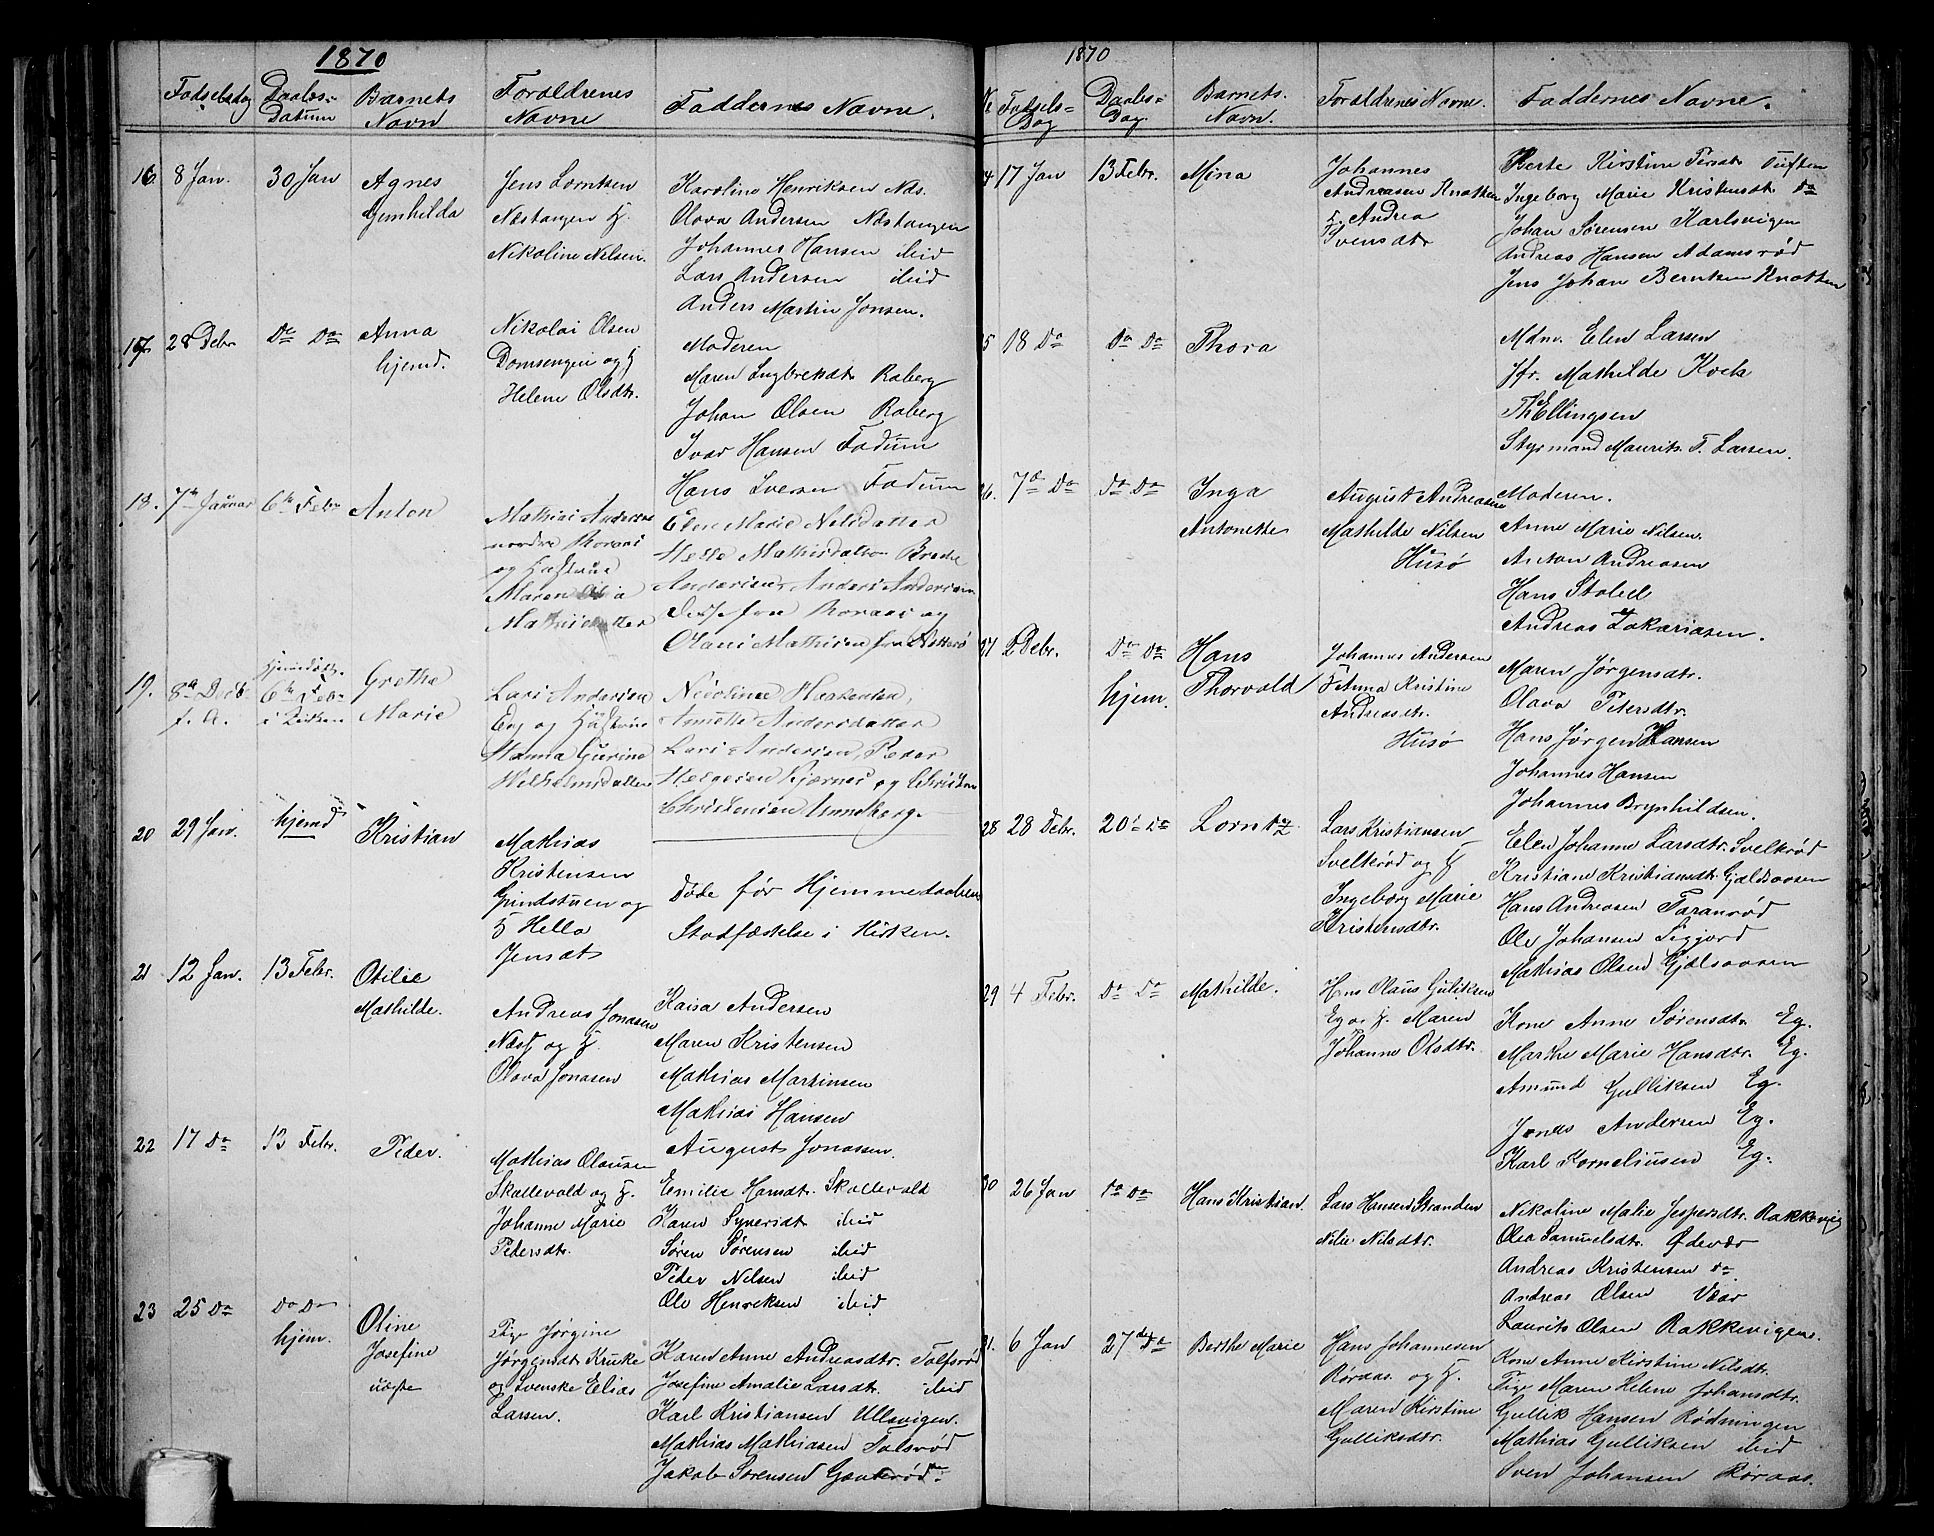 1870
Fødselsdag
Daabs-
Datum
Barnets
Navn
Forældrenes
Navne
Faddernes Navne.
16. 8 Jan. 30 Jan
Agnes
Gunhilda
Jens Lorntsen
Næstangen
Nikoline Nilsen.
Karoline Henriksen Næs.
Olava Andersen Næstangen
Johannes Hansen ibid
Lars Andersen ibid
Anders Martin Jonsen.
17. 28 Debr Do Do
Anna
hjemd.
Nikolai Olsen
Domsengen og H
Helene Olsdtr.
Moderen
Maren Ingbretsdt Raberg
Johan Olsen Raberg
Ivar Hansen Fadum
Hans Iversen Fadum
18. 7de Januar 6te Febr Anton
Mathias Andersen
nordre Roraas
og Hustrue
Maren
Mathisdatter
Elen Marie Nilsdatter
Mathisdatter
Andersen, Anders Andersen
fra Roraas og
Olaus Mathisen fra Nøtterø
19. 8de Decb.
f. A.
hjemdøbt.
6te Febr
i Kirken
Grethe
Marie
Lars Andersen
Eeg og Hustrue
Hanna Gurine
Wilhelmsdatter
Nicoline
Annette Andersdatter
Lars Andersen, Peder
Kjærnes og Christen
Christensen Unneberg.
20 29 Jan. hjemd
Kristian
Mathias
Kristensen
Grindstuen og
H Hella
Jensdt
Døde før Hjemmedaabens
Stadfæstelse i Kirken.
21 12 Jan. 13 Febr.
Otilie
Mathilde.
Andreas Jonasen
Næs og H.
Olava Jonasen
Kaisa Andersen
Maren Kristensen
Mathias Martinsen
Mathias Hansen
August Jonassen.
22 17 Do 13 Febr.
Peder.
Mathias Olausen
Skallevold og H.
Johanne Marie
Pedersdtr.
Emilie Hansdt. Skallevold
Karen Synersdt ibid
Søren Sørensen ibid
Peder Nilsen ibid
Ole Henriksen ibid
23 25 Do Do Do
hjem.
Oline
Josefine
uægte
Pige Jørgine
Jørgensdt Kruke
og Svenske Elias
Larsen.
Karen Anne Andreasdtr. Tolfsrød
Josefine Amalie Larsdt. ibid
Karl Kristiansen Ullevigen.
Mathias Mathiasen Tolsrød
Jakob Sørensen
1870
Nr
Fødsels-
Dag
Daabs-
Dag.
Barnets.
Navn.
Forældrenes Navne.
Faddernes Navne.
4 17 Jan 13 Febr. Mina
Johannes
Andreasen Knatten
H. Andrea
Svensdtr
Berte Kirstine Persdt Tuften
Ingeborg Marie Kristensdt. Do
Johan Sørensen Karlsvigen
Andreas Hansen Adamsrød
Jens Johan Berntsen Knatten
5 18 Do Do Do Thora
Mdm. Elen Larsen
Jfr. Mathilde Koch
Th Ellingsen
Styrmand Maurits T. Larsen.
26. 7de Do Do Do
Inga
Antonette
August Andreasen
Mathilde Nilsen
Husø
Moderen.
Anne Marie Nilsen.
Anton Andreasen
Hans Stoled
Andreas Zakariasen.
27 2 Debr. Do Do
hjem.
Hans
Thorvald
Johannes Andersen
H Anna Kristine
Andreasdtr.
Husø
Maren Jørgensdtr.
Olava Petersdtr.
Hans Jørgen Hansen
Johannes Hansen
Johannes Brynhildsen.
28 28 Debr. 20de Do Lorntz
Lars Kristiansen
Svelterød og H
Ingeborg Marie
Kristensdtr.
Elen Johanne Larsdtr. Svelkrød
Kristiane Kristiansdt. Gjælsaasen
Hans Andreasen Faranrød
Ole Johansen
Mathias Olsen Gjælsaasen
29 4 Febr. Do Do Mathilde.
Hans Olaus Guliksen
Eg og H. Maren
Johanne Olsdtr.
Kone Anne Sørensdt. Eg.
Marthe Marie Hansdtr. Eg.
Amund Gulliksen Eg.
Jonas Andersen Eg.
Karl Korneliusen Eg.
30 26 Jan Do Do
Hans Kristian.
Lars Hansen Stranden
Nilie Nilsdtr.
Nikoline Malie Jespersdtr. Rakkevig
Olea Samuelsdtr. Ødevær
Andreas Kristensen Do
Andreas Olsen Vær
Laurits Olsen Rakkevigen.
31. 6 Jan 27de Do Berthe Marie
Hans Johannesen
Røraas og H.
Maren Kirstine
Gulliksdtr.
Kone Anne Kirstine Nilsdt.
Pige Maren Helene Johansdtr.
Gullik Hansen Rødningen
Mathias Gulliksen ibid
Sven Johansen Røraas.